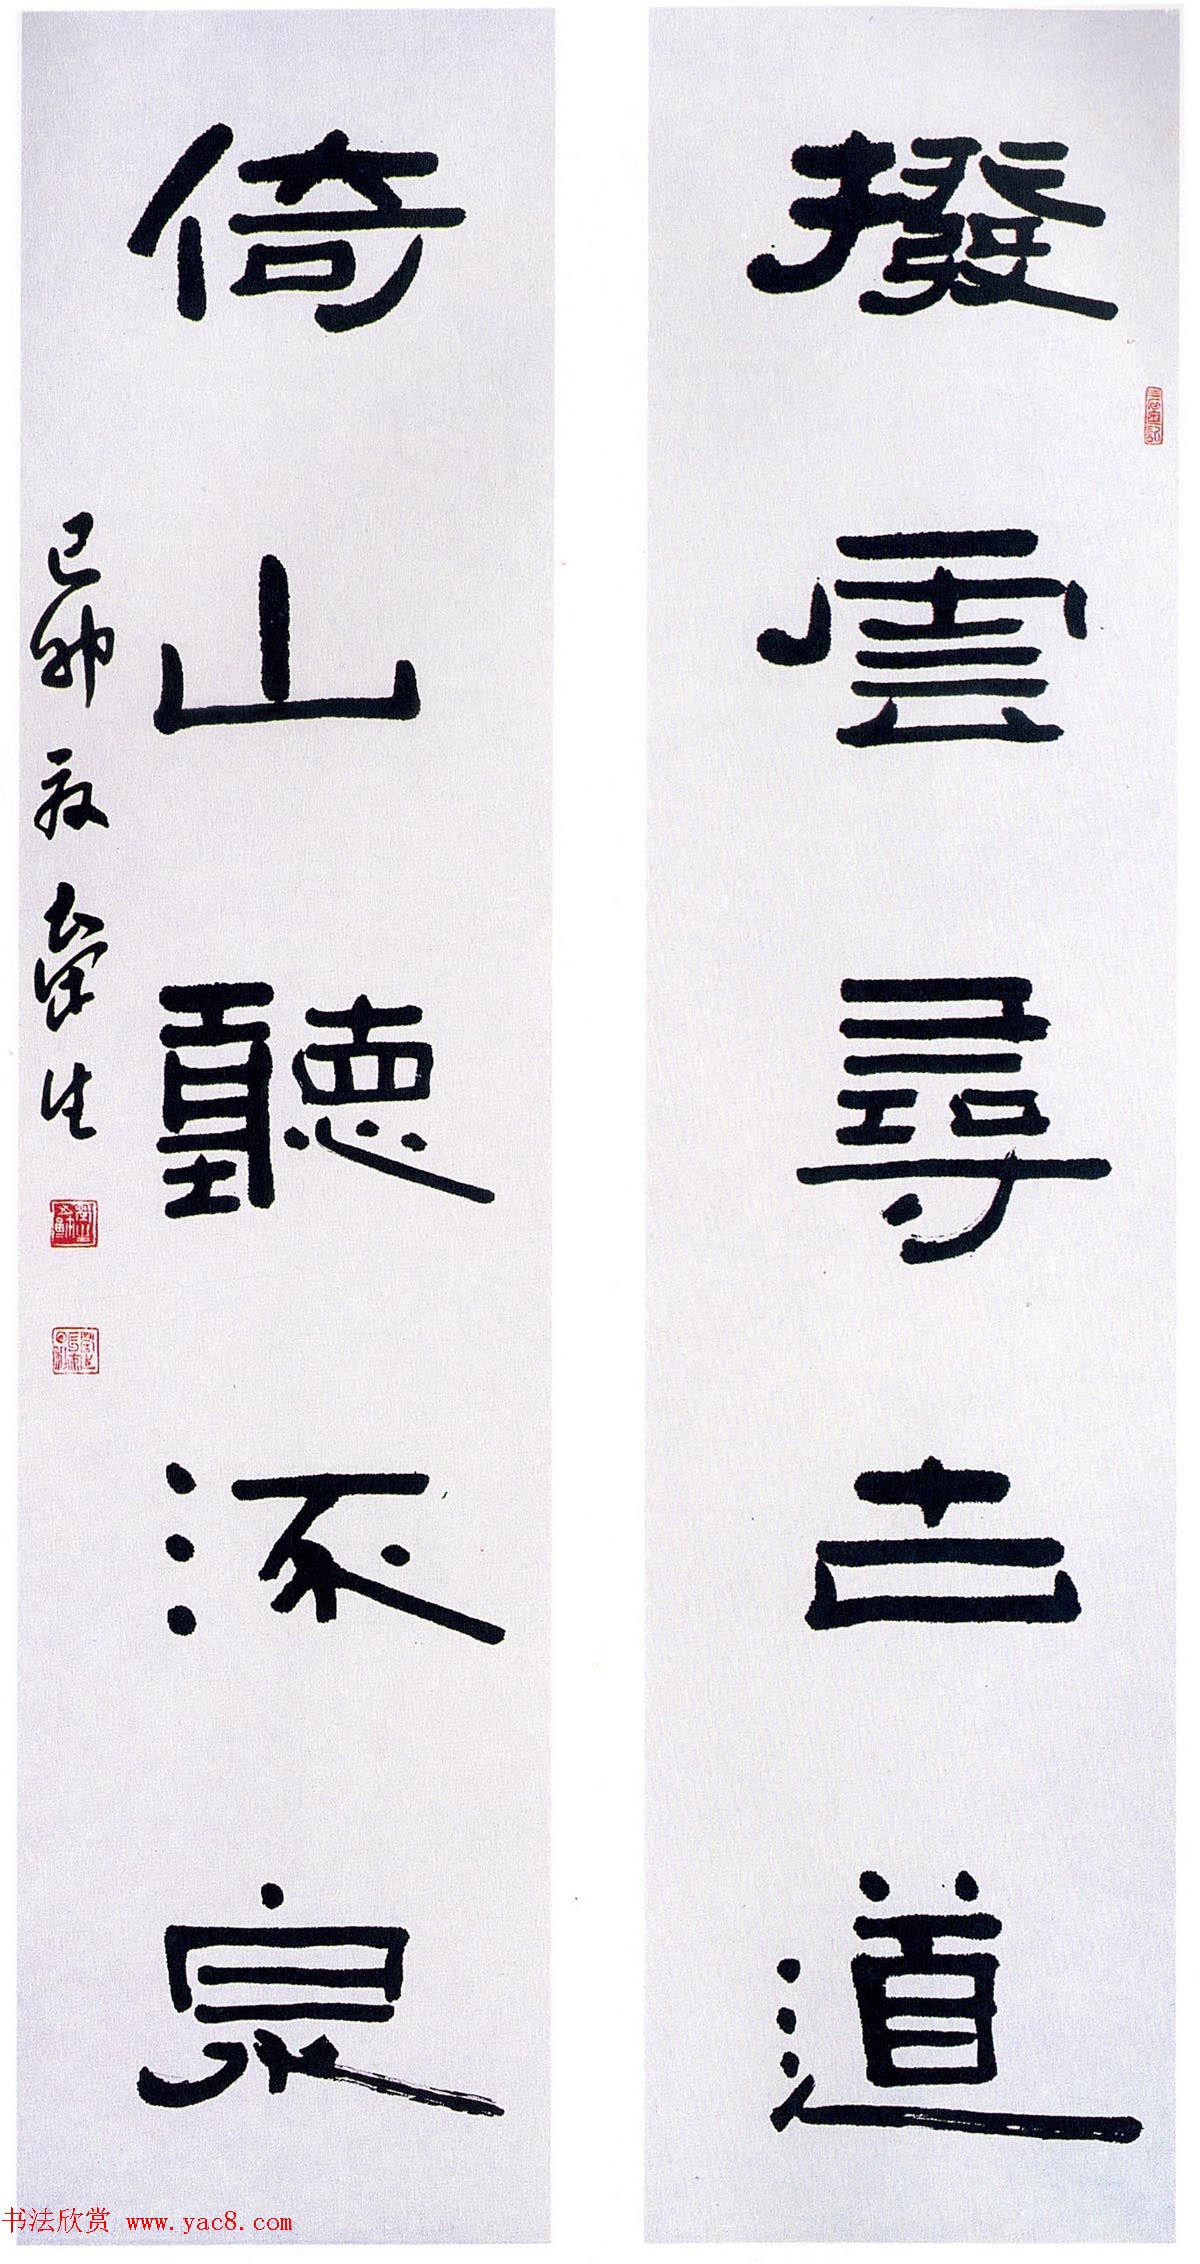 撥雲尋古道
倚山聽流泉
己卯夏榮生
书法欣赏 www.yac8.com